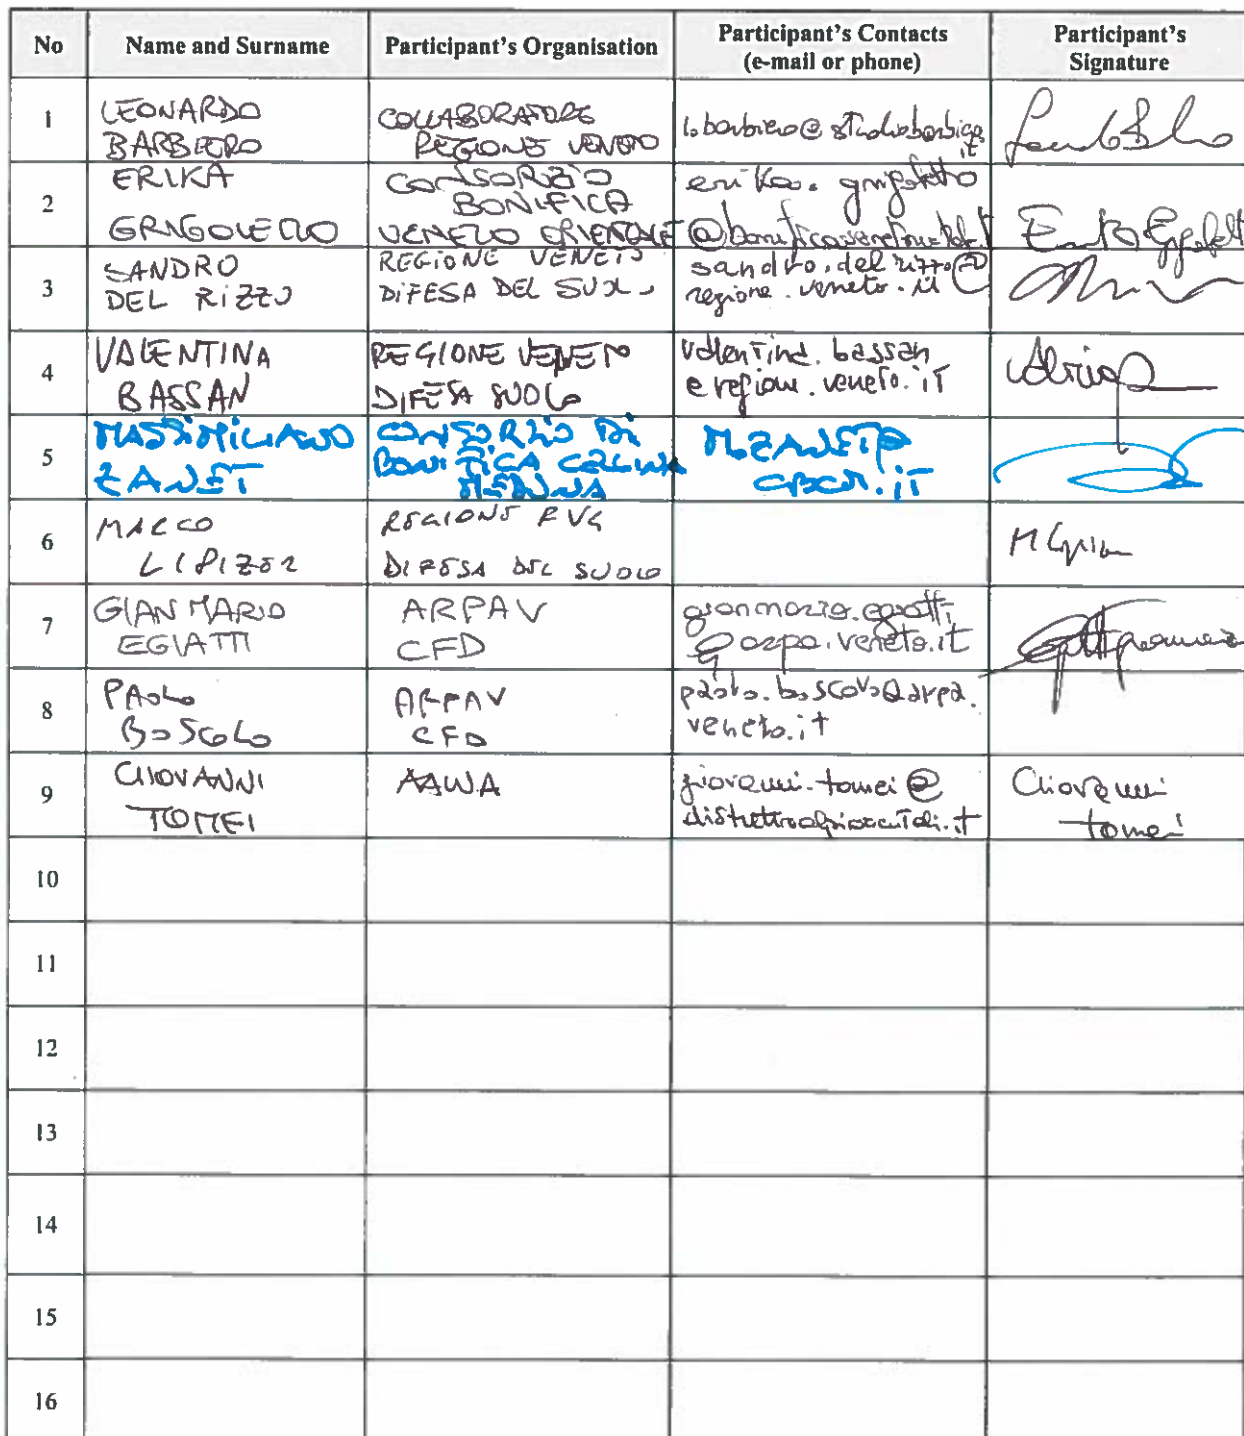 No Name and Surname Participant's Organisation Participant's Contacts (e-mail or phone) Participant's Signature
1
LEONARDO
BARBIERO
COLLABORATORE
REGIONE VENETO
2
ERIKA
GRIGOLETTO
CONSORZIO
BONIFICA
VENETO ORIENTALE
erika. grigoletto
3
SANDRO
DEL RIZZO
REGIONE VENETO
DIFESA DEL SUOLO
sandro.del rizzo@
regione.veneto.it
4
VALENTINA
BASSAN
REGIONE VENETO
DIFESA SUOLO
valentina.bassan
e regione.veneto.it
5
MASSIMILIANO
ZANET
CONSORZIO DI
BONIFICA CELLINA
MEDUNA
M.ZANET@
CBCM.iT
6
MARCO
LIPIZER
REGIONE FVG
DIFESA DEL SUOLO
7
GIAN MARIO
EGIATTI
ARPAV
CFD
gianmario.egiatti
@arpa.veneto.it
8
PAOLO
BOSCOLO
ARPAV
CFD
paolo.boscolo@arpa.
veneto.it
9
GIOVANNI
TOMEI
AAWA
giovanni.tomei@
distrettoalpiorientali.it
Giovanni
tomei
10
11
12
13
14
15
16